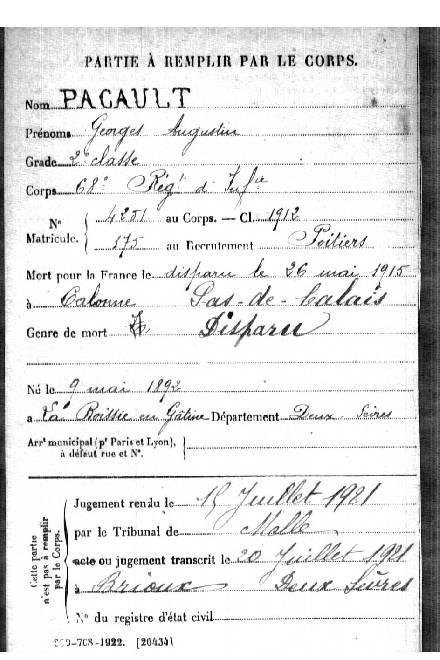 PARTIE À REMPLIR PAR LE CORPS.
Nom PACAULT
Prénoms Georges Augustin
Grade 2e classe
Corps 68e Régt d'Infie
No Matricule. 4251 au Corps. — Cl. 1912
575 au Recrutement Poitiers
Mort pour la France le disparu le 26 mai 1915
à Calonne Pas-de-Calais
Genre de mort Disparu
Né le 9 mai 1892
a La Boissie en Gâtine Département Deux Sèvres
Arrt municipal (pr Paris et Lyon), à défaut rue et No.
Cette partie n'est pas à remplir par le Corps.
Jugement rendu le 15 Juillet 1921
par le Tribunal de Melle
acte ou jugement transcrit le 20 Juillet 1921
à Brioux Deux Sèvres
No du registre d'état civil
-708-1922. [26434]